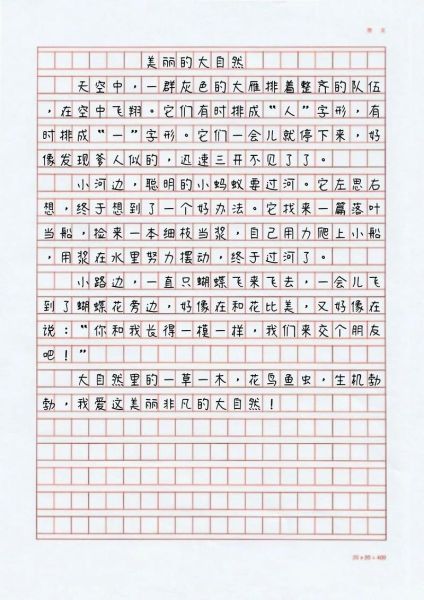 美丽的大自然
天空中，一群灰色的大雁排着整齐的队伍
，在空中飞翔。它们有时排成“人”字形，有
时排成“一”字形。它们一会儿就停下来，好
像发现爹人似的，迅速三开不见了了。
小河边，聪明的小蚂蚁要过河。它左思右
想，终于想到了一个好办法。它找来一篇落叶
当船，捡来一本细枝当桨，自己用力爬上小船
，用浆在水里努力摆动，终于过河了。
小路边，一直只蝴蝶飞来飞去，一会儿飞
到了蝴蝶花旁边，好像在和花比美，又好像在
说：“你和我长得一模一样，我们来交个朋友
吧！”
大自然里的一草一木，花鸟鱼虫，生机勃
勃，我爱这美丽非凡的大自然！
20×20=400